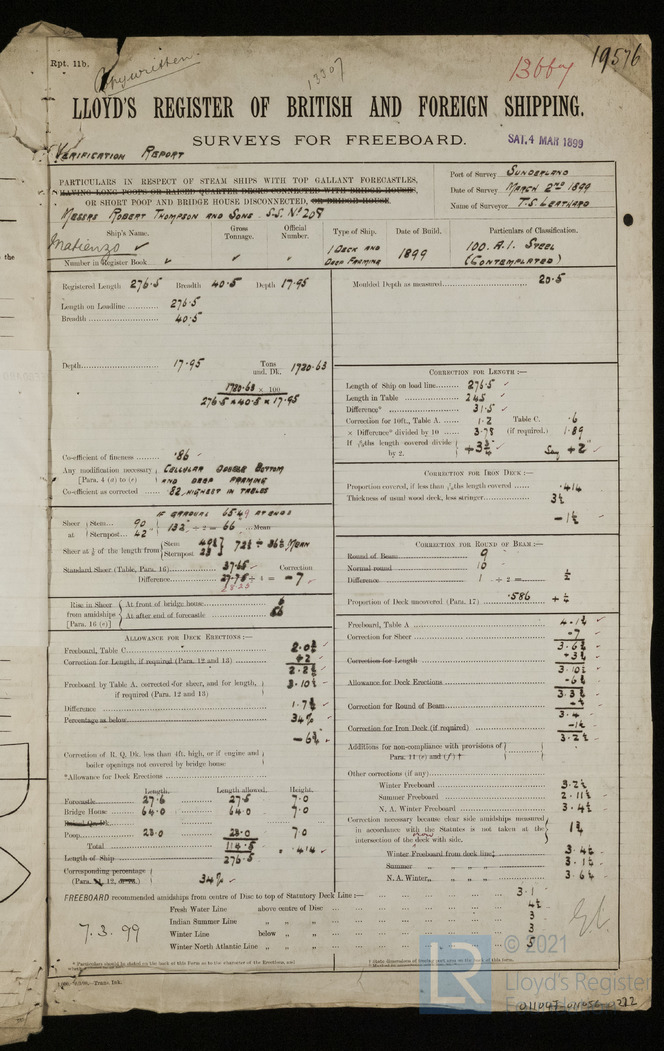 Rpt. 11b.
Copy written.
13307
13667
19576
LLOYD'S REGISTER OF BRITISH AND FOREIGN SHIPPING.
SURVEYS FOR FREEBOARD.
SAT. 4 MAR 1899
VERIFICATION REPORT
PARTICULARS IN RESPECT OF STEAM SHIPS WITH TOP GALLANT FORECASTLES,
HAVING LONG POOPS OR RAISED QUARTER DECKS CONNECTED WITH BRIDGE HOUSES,
OR SHORT POOP AND BRIDGE HOUSE DISCONNECTED, OR BRIDGE HOUSE.
Port of Survey SUNDERLAND
Date of Survey MARCH 2ND 1899
Name of Surveyor T.S. LEATHARD
MESSRS ROBERT THOMPSON AND SONS S.S. No 209
Ship's Name. Gross Tonnage. Official Number. Type of Ship. Date of Build. Particulars of Classification.
Matienzo
Number in Register Book
1 DECK AND DEEP FRAMING
1899
100. A.1. STEEL
(CONTEMPLATED)
Registered Length 276.5 Breadth 40.5 Depth 17.95
Length on Loadline 276.5
Breadth 40.5
Depth 17.95 Tons und. Dk. 1720.63
1720.63 × 100
276.5 × 40.5 × 17.95
Co-efficient of fineness .86
Any modification necessary [Para. 4 (d) to (e)] CELLULAR DOUBLE BOTTOM
AND DEEP FRAMING
Co-efficient as corrected .82, HIGHEST IN TABLES
IF GRADUAL 65.49 AT ENDS
Sheer at Stem 90
Sternpost 42 132 ÷ 2 = 66 Mean
Sheer at 1/8 of the length from Stem
Sternpost MEAN
Standard Sheer (Table, Para. 16) 37.65 Correction
Difference ÷ 4 = -7
Rise in Sheer from amidships [Para. 16 (e)]
At front of bridge house 6
At after end of forecastle 66
ALLOWANCE FOR DECK ERECTIONS :—
Freeboard, Table C.
Correction for Length, if required (Para. 12 and 13) +2
Freeboard by Table A. corrected for sheer, and for length, if required (Para. 12 and 13) 3.10½
Difference
Percentage as below 34%
Correction of R. Q. Dk. less than 4ft. high, or if engine and boiler openings not covered by bridge house
*Allowance for Deck Erections
Length. Length allowed. Height.
Forecastle 27.6 27.5 7.0
Bridge House 64.0 64.0 7.0
Raised Qr. Dk.
Poop 23.0 23.0 7.0
Total 114.5
Length of Ship 276.5 = .414
Corresponding percentage (Para. 12,) 34%
Moulded Depth as measured 20.5
CORRECTION FOR LENGTH :—
Length of Ship on load line 276.5
Length in Table 245
Difference* 31.5
Correction for 10ft., Table A. 1.2 Table C. .6
× Difference* divided by 10 3.78 (if required.) 1.89
If 6/10ths length covered divide by 2. +3¾ Say +2"
CORRECTION FOR IRON DECK :—
Proportion covered, if less than 7/10ths length covered .414
Thickness of usual wood deck, less stringer 3½
-1½
CORRECTION FOR ROUND OF BEAM :—
Round of Beam 9
Normal round 10
Difference 1 ÷ 2 = ½
Proportion of Deck uncovered (Para. 17) .586
Freeboard, Table A
Correction for Sheer -7
Correction for Length +3¾
3.10½
Allowance for Deck Erections
Correction for Round of Beam
Correction for Iron Deck (if required)
Additions for non-compliance with provisions of Para. 11 (e) and (f) †
Other corrections (if any)
Winter Freeboard 3.2½
Summer Freeboard 2.11½
N. A. Winter Freeboard 3.4½
Correction necessary because clear side amidships measured in accordance with the Statutes is not taken at the intersection of the deck with side.
Winter Freeboard from deck line
Summer „ „ „ „
N. A. Winter „ „ „ „
FREEBOARD recommended amidships from centre of Disc to top of Statutory Deck Line :— 3.1
Fresh Water Line above centre of Disc 4½
Indian Summer Line „ „ 3
Winter Line below „ 3
Winter North Atlantic Line „ „ 5
7.3.99
LR
© 2021
Lloyd's Register